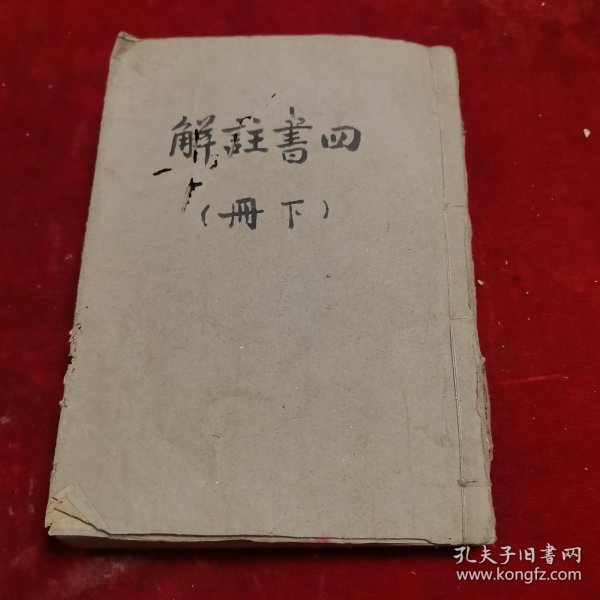 四書註解
(下冊)
孔夫子旧書网
www.kongfz.com